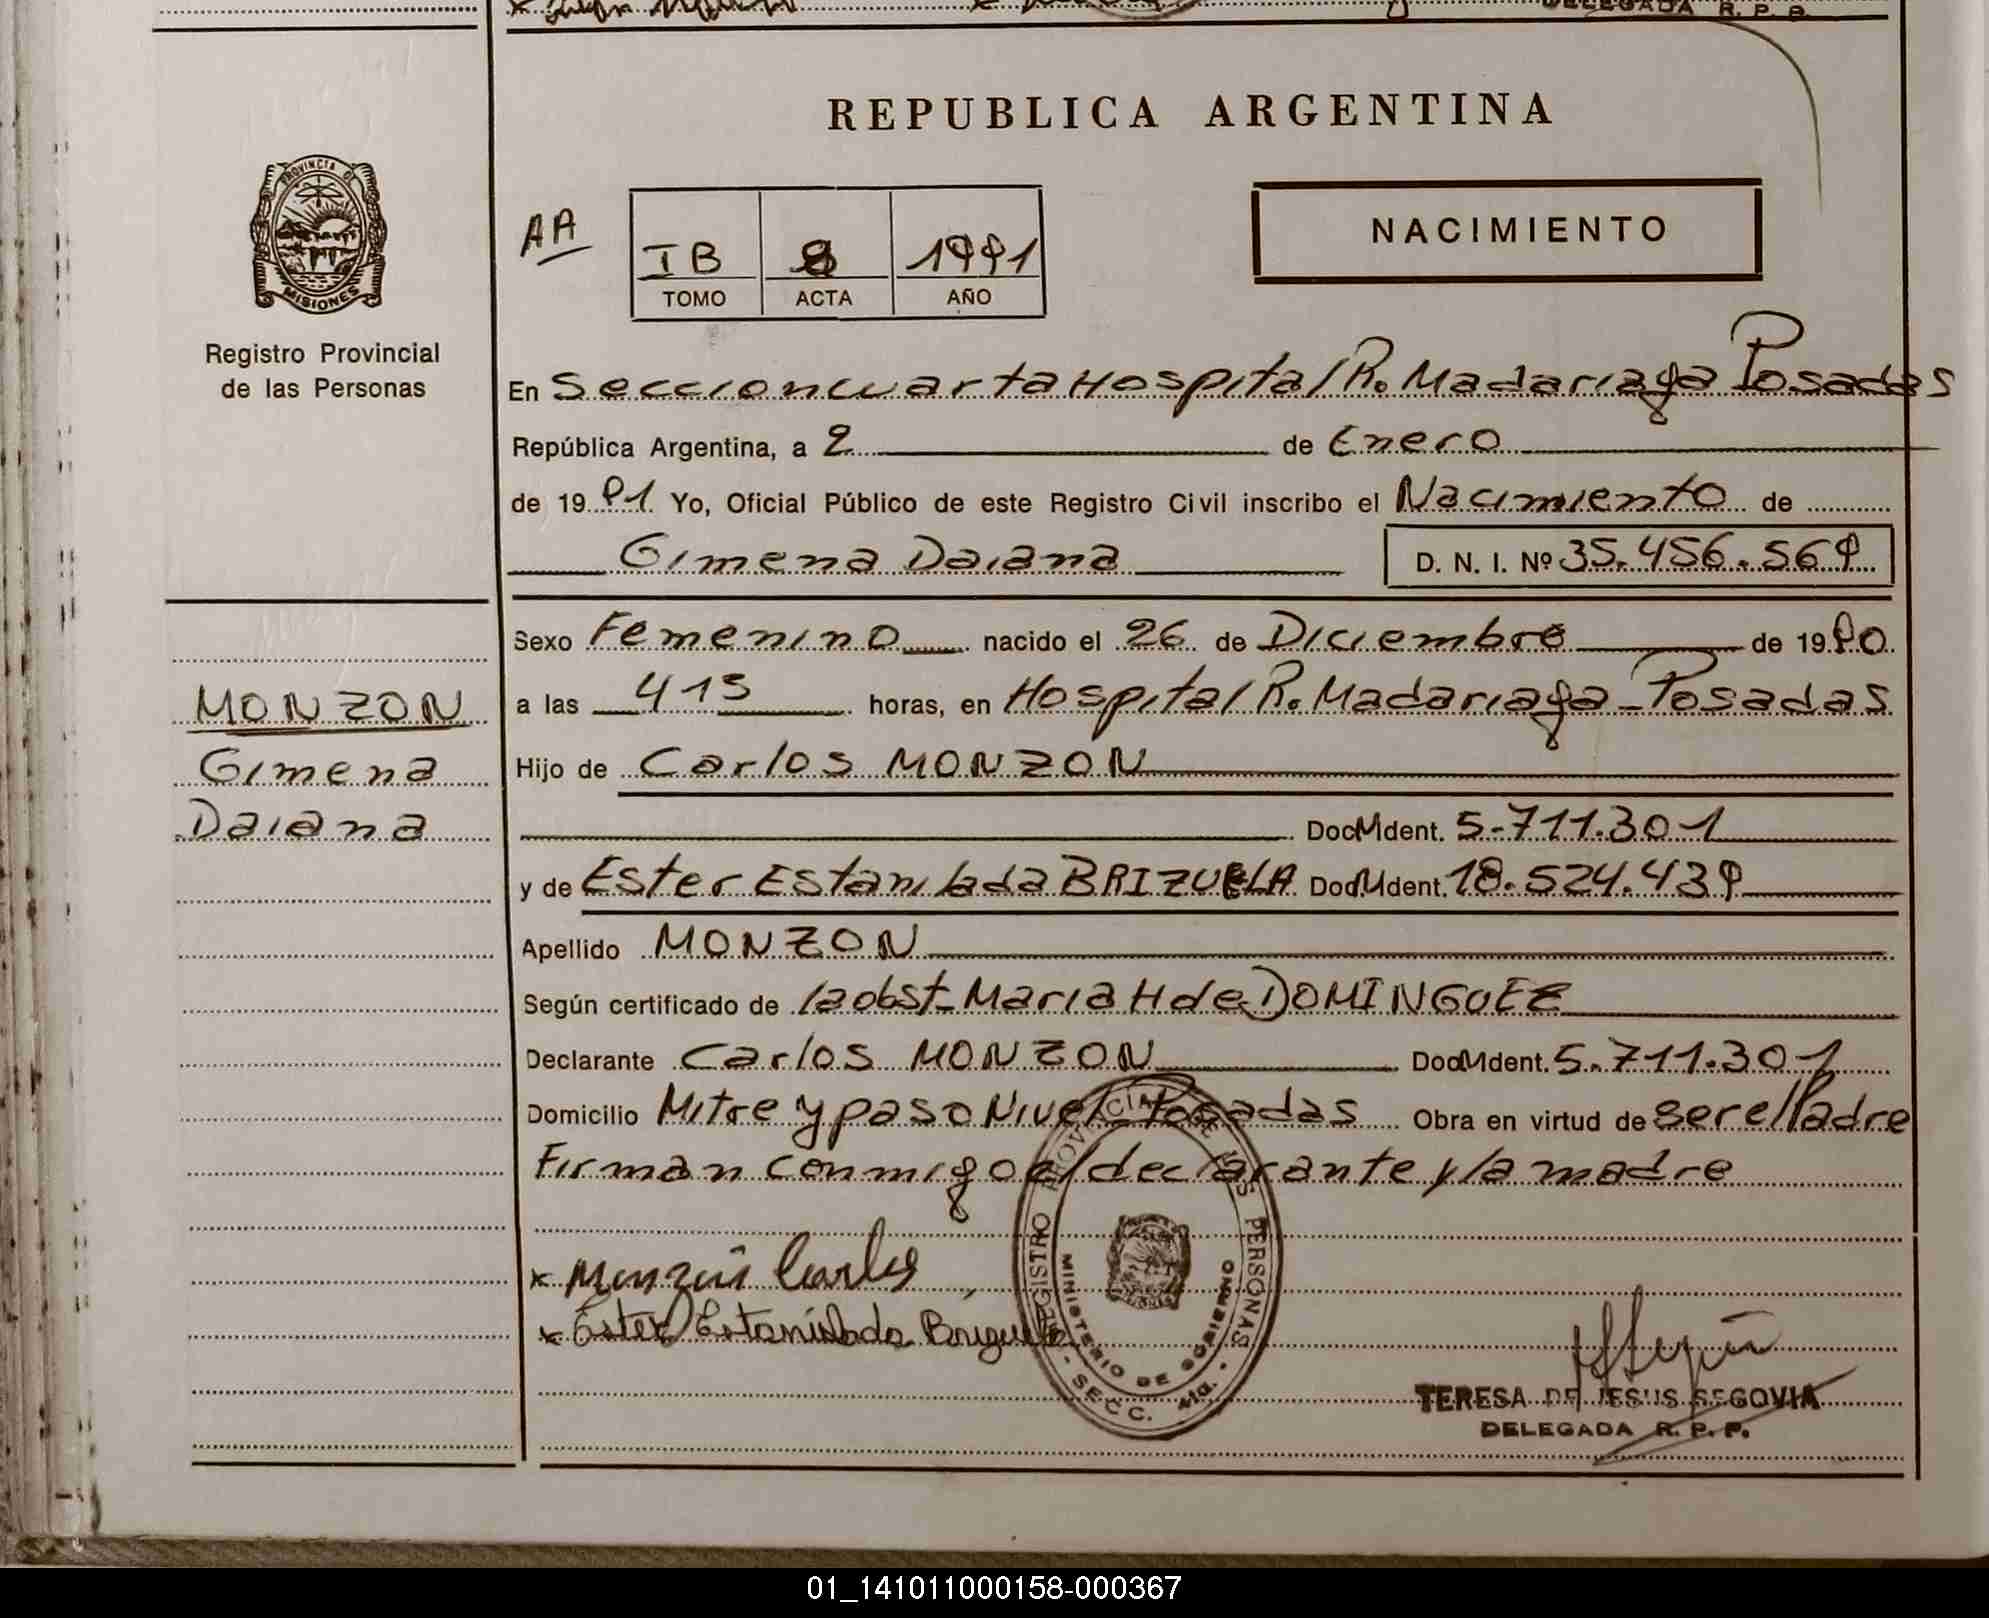 DELEGADA R. P. P.
REPUBLICA ARGENTINA
PROVINCIA DE
MISIONES
Registro Provincial
de las Personas
AA
IB 8 1991
TOMO ACTA AÑO
NACIMIENTO
En Seccion cuarta Hospital R. Madariaga Posadas
República Argentina, a 2 de Enero
de 1991 Yo, Oficial Público de este Registro Civil inscribo el Nacimiento de
Gimena Daiana D. N. I. Nº 35.456.569
Sexo Femenino nacido el 26 de Diciembre de 1990
a las 415 horas, en Hospital R. Madariaga - Posadas
MONZON
Gimena
Daiana
Hijo de Carlos MONZON
Doc. Ident. 5.711.301
y de Ester Estanilada BRIZUELA Doc. Ident. 18.524.439
Apellido MONZON
Según certificado de la obst. Maria H de DOMINGUEZ
Declarante Carlos MONZON Doc. Ident. 5.711.301
Domicilio Mitre y paso Nivel Posadas Obra en virtud de ser el Padre
Firman conmigo el declarante y la madre
x Monzón Carlos
x Ester Estanislada Brizuela
REGISTRO PROVINCIAL DE LAS PERSONAS
MINISTERIO DE GOBIERNO
- SECC. 4ta. -
TERESA DE JESUS SEGOVIA
DELEGADA R. P. P.
01_141011000158-000367